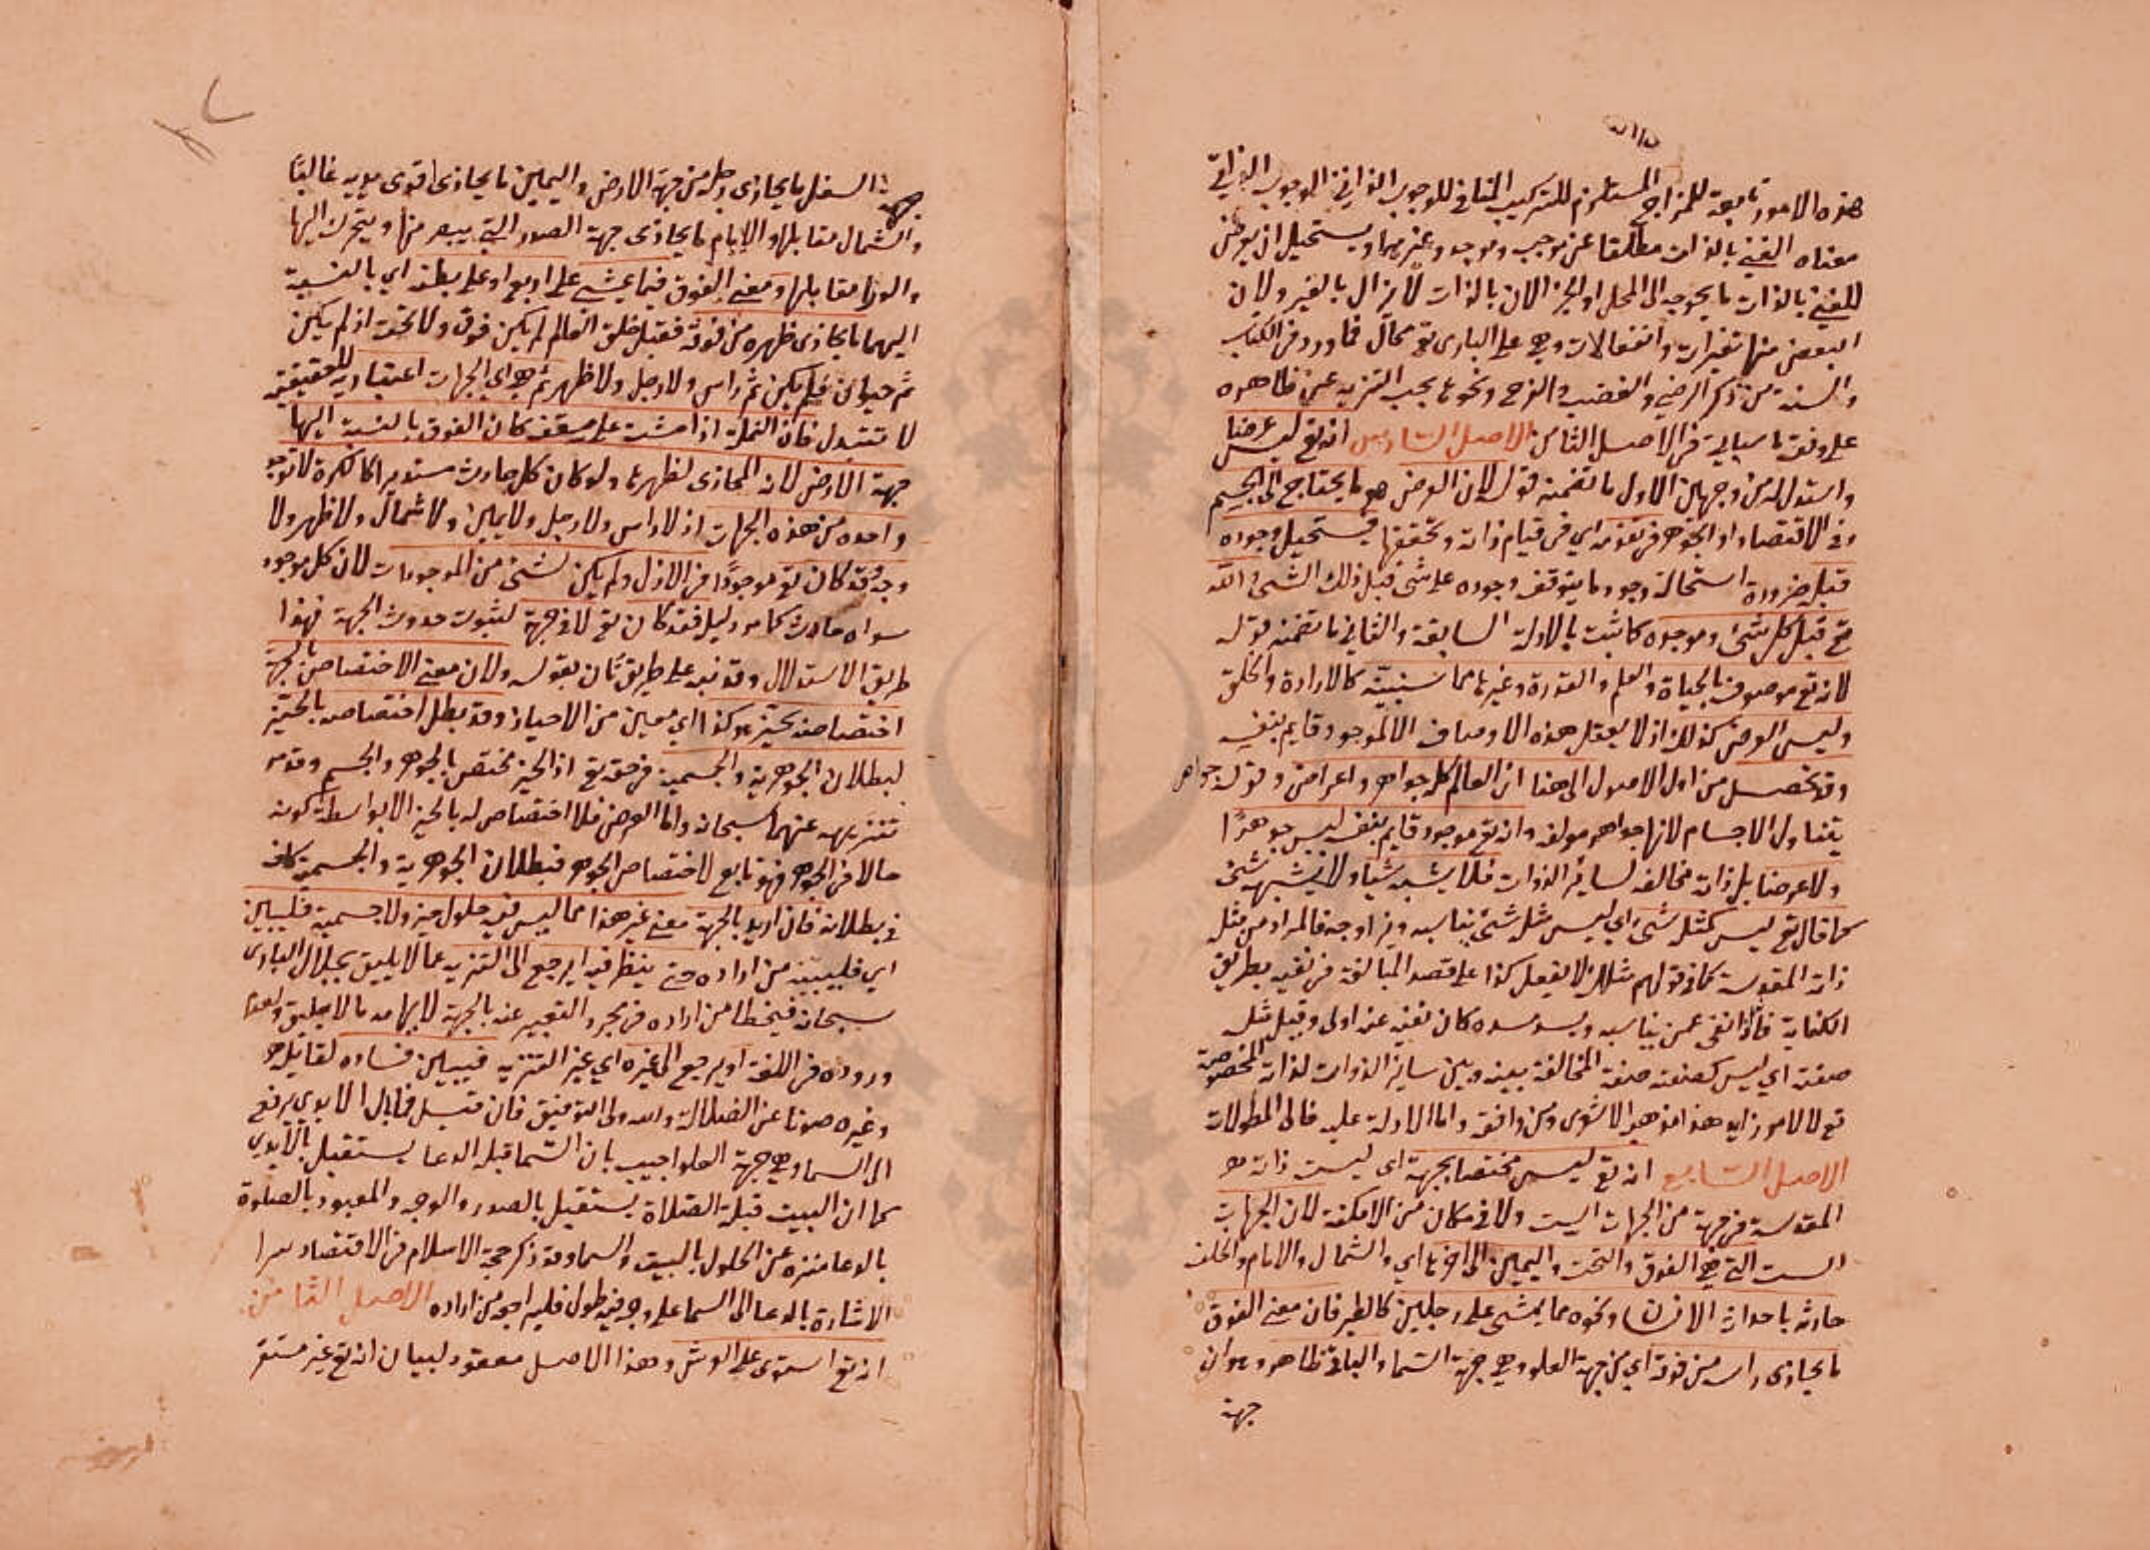 هذه الامور تابعة للمزاج المستلزم للتركيب المنافي للوجوب الذاتي اذ الوجوب الذاتي
معناه الغني بالذات مطلقا عن موجب وموجد وغيرهما ويستحيل ان يعرض
للغني بالذات ما يحوجه الى المحل او الجزء لان بالذات لا يزال بالغير ولان
البعض منها تغيرات وانفعالات وهي على الباري تع محال فما ورد في الكتاب
والسنة من ذكر الرضى والغضب والفرح ونحوها يجب التنزيه عن ظاهره
على وفق ما سياتي في الاصل الثامن الاصل السادس انه تع ليس عرضا
واستدل له من وجهين الاول ما تضمنه قوله لان العرض هو ما يحتاج الى الجسم
وفي الاقتصاد او الجوهر في تقومه اي في قيام ذاته وتحققها فيستحيل وجوده
قبله ضرورة استحالة وجود ما يتوقف وجوده على شئ قبل ذلك الشئ والله
تع قبل كل شئ وموجده كما ثبت بالادلة السابقة والثاني ما تضمنه قوله
لانه تع موصوف بالحياة والعلم والقدرة وغيرها مما سنبينه كالارادة والخلق
وليس العرض كذلك اذ لا يعقل هذه الاوصاف الا لموجود قايم بنفسه
وقد تحصل من اول الاصول الى هنا ان العالم كله جواهر واعراض وقوله جواهر
يتناول الاجسام لانها جواهر مولفه وانه تع موجود قايم بنفسه ليس جوهرا
ولا عرضا بل ذاته مخالفه لساير الذوات فلا يشبه شيا ولا يشبهه شئ
كما قال تع ليس كمثله شئ اي ليس مثله شئ يناسبه ويزاوجه فالمراد من مثله
ذاته المقدسة كما في قولهم مثلك لا يفعل كذا على قصد المبالغة في نفيه بطريق
الكناية فاذا نفى عمن يناسبه ويسد مسده كان نفيه عنه اولى وقيل مثله
صفته اي ليس كصفته صفة المخالفة بينه وبين ساير الذوات لذاته المخصوصة
تع لا لامر زايد هذا مذهب الاشعري ومن وافقه واما الادلة عليه فالى المطولات
الاصل السابع انه تع ليس مختصا بجهة اي ليست ذاته
المقدسة في جهة من الجهات الست ولا في مكان من الامكنة لان الجهات
الست التي هي الفوق والتحت واليمين الى اخرها اي والشمال والامام والخلف
حادثه باحداث الانسان ونحوه مما يمشي على رجلين كالطير فان معنى الفوق
ما يحاذي راسه من فوقه اي من جهة العلو وهي جهة السما والباقي ظاهر وهو ان
جهة
جهة السفل ما يحاذي رجله من جهة الارض واليمين ما يحاذي اقوى يديه غالبا
والشمال مقابلها والامام ما يحاذي جهة الصدر التي يبصر منها ويتحرك اليها
والورا مقابلها ومعنى الفوق فيما يمشي على اربع او على بطنه اي بالنسبة
اليهما ما يحاذي ظهره من فوقه فقبل خلق العالم لم يكن فوق ولا تحت اذ لم يكن
ثم حيوان فلم يكن ثم راس ولا رجل ولا ظهر ثم هي اي الجهات اعتبارية لا حقيقية
لا تتبدل فان النملة اذا مشت على سقف كان الفوق بالنسبة اليها
جهة الارض لانه المحاذي لظهرها ولو كان كل حادث مستديرا كالكرة لا توجد
واحدة من هذه الجهات اذ لا راس ولا رجل ولا يمين ولا شمال ولا ظهر ولا
وجه وقد كان تع موجودا في الازل ولم يكن لشئ من الموجودات لان كل موجود
سواه حادث كما مر دليله فقد كان تع لا في جهة لثبوت حدوث الجهة فهذا
طريق الاستدلال وقد نبه على طريق ثان بقوله ولان معنى الاختصاص بالجهة
اختصاصه بحيز هو كذا اي معين من الاحياز وقد بطل اختصاصه بالحيز
لبطلان الجوهرية والجسمية في حقه تع اذ الحيز مختص بالجوهر والجسم وقد مر
تنزيهه عنهما سبحانه واما العرض فلا اختصاص له بالحيز الا بواسطة كونه
حالا في الجوهر فهو تابع لاختصاص الجوهر فبطلان الجوهرية والجسمية كاف
في بطلانه فان اريد بالجهة معنى غير هذا مما ليس فيه حلول حيز ولا جسمية فليبين
اي فليبينه من اراده حتى ينظر فيه ايرجع الى التنزيه عما لا يليق بجلال الباري
سبحانه فيخطا من اراده في مجرد التعبير عنه بالجهة لايهامه ما لا يليق ولعدم
وروده في اللغة او يرجع الى غيره اي غير التنزيه فيبين فساده لقايله
وغيره صونا عن الضلالة والله ولي التوفيق فان قيل فما بال الايدي يرفع
الى السما وهي جهة العلو اجيب بان السما قبلة الدعا يستقبل بالايدي
كما ان البيت قبلة الصلاة يستقبل بالصدر والوجه والمعبود بالصلوة
بالدعا منزه عن الحلول بالبيت والسما وقد ذكر حجة الاسلام في الاقتصاد سرا
الاشارة بالدعا الى السما على وجه فيه طول فليراجعه من اراده الاصل الثامن
انه تع استوى على العرش وهذا الاصل معقود لبيان انه تع غير مستقر